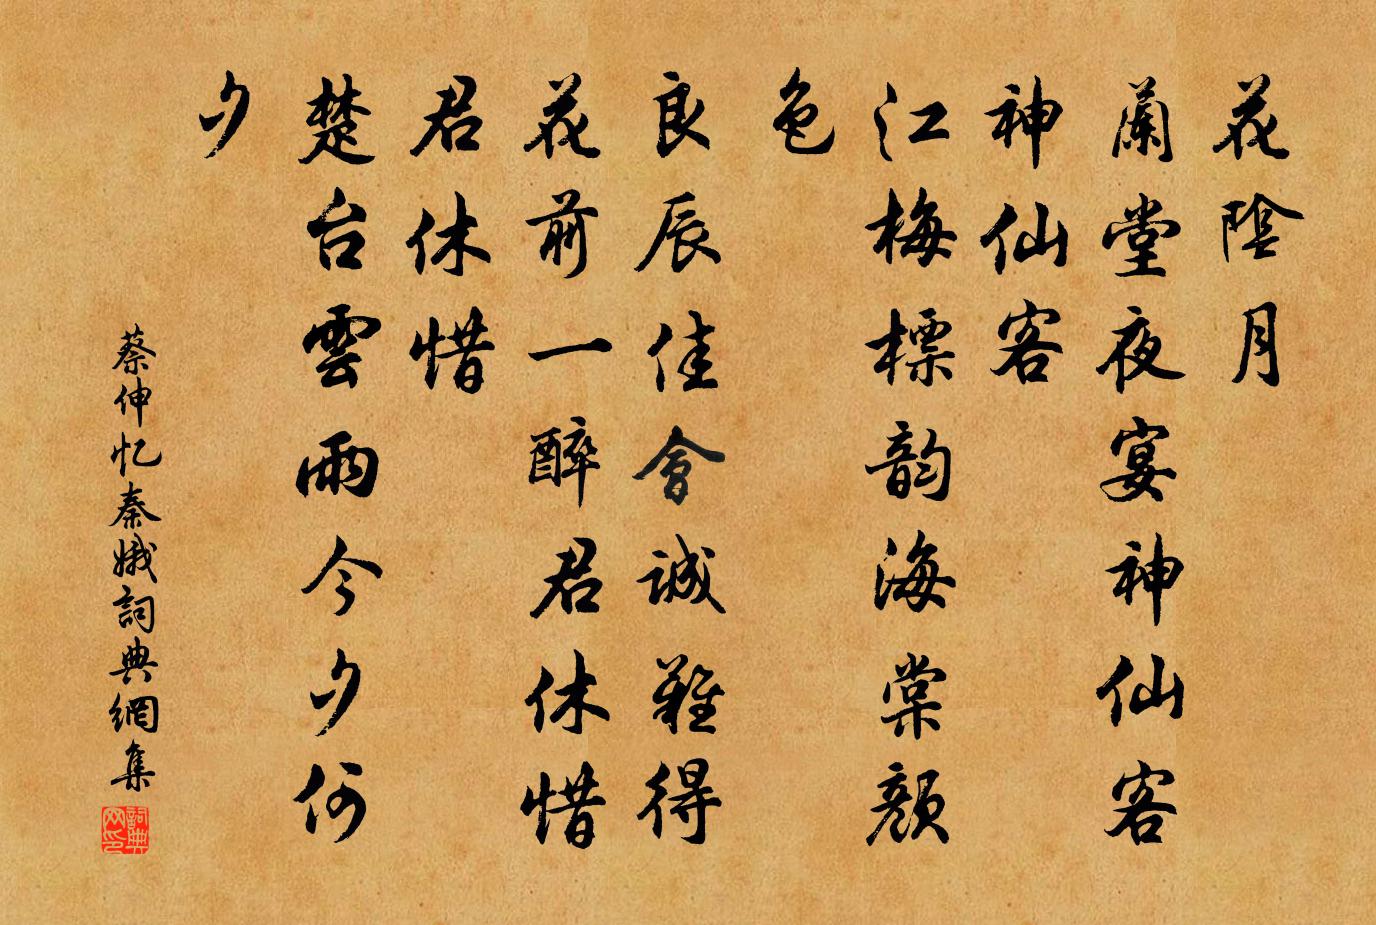 花陰月
蘭堂夜宴神仙客
神仙客
江梅標韵海棠顔
色
良辰佳會誠難得
花前一醉君休惜
君休惜
楚台雲雨今夕何
夕
蔡伸忆秦娥詞典網集
詞典
网印